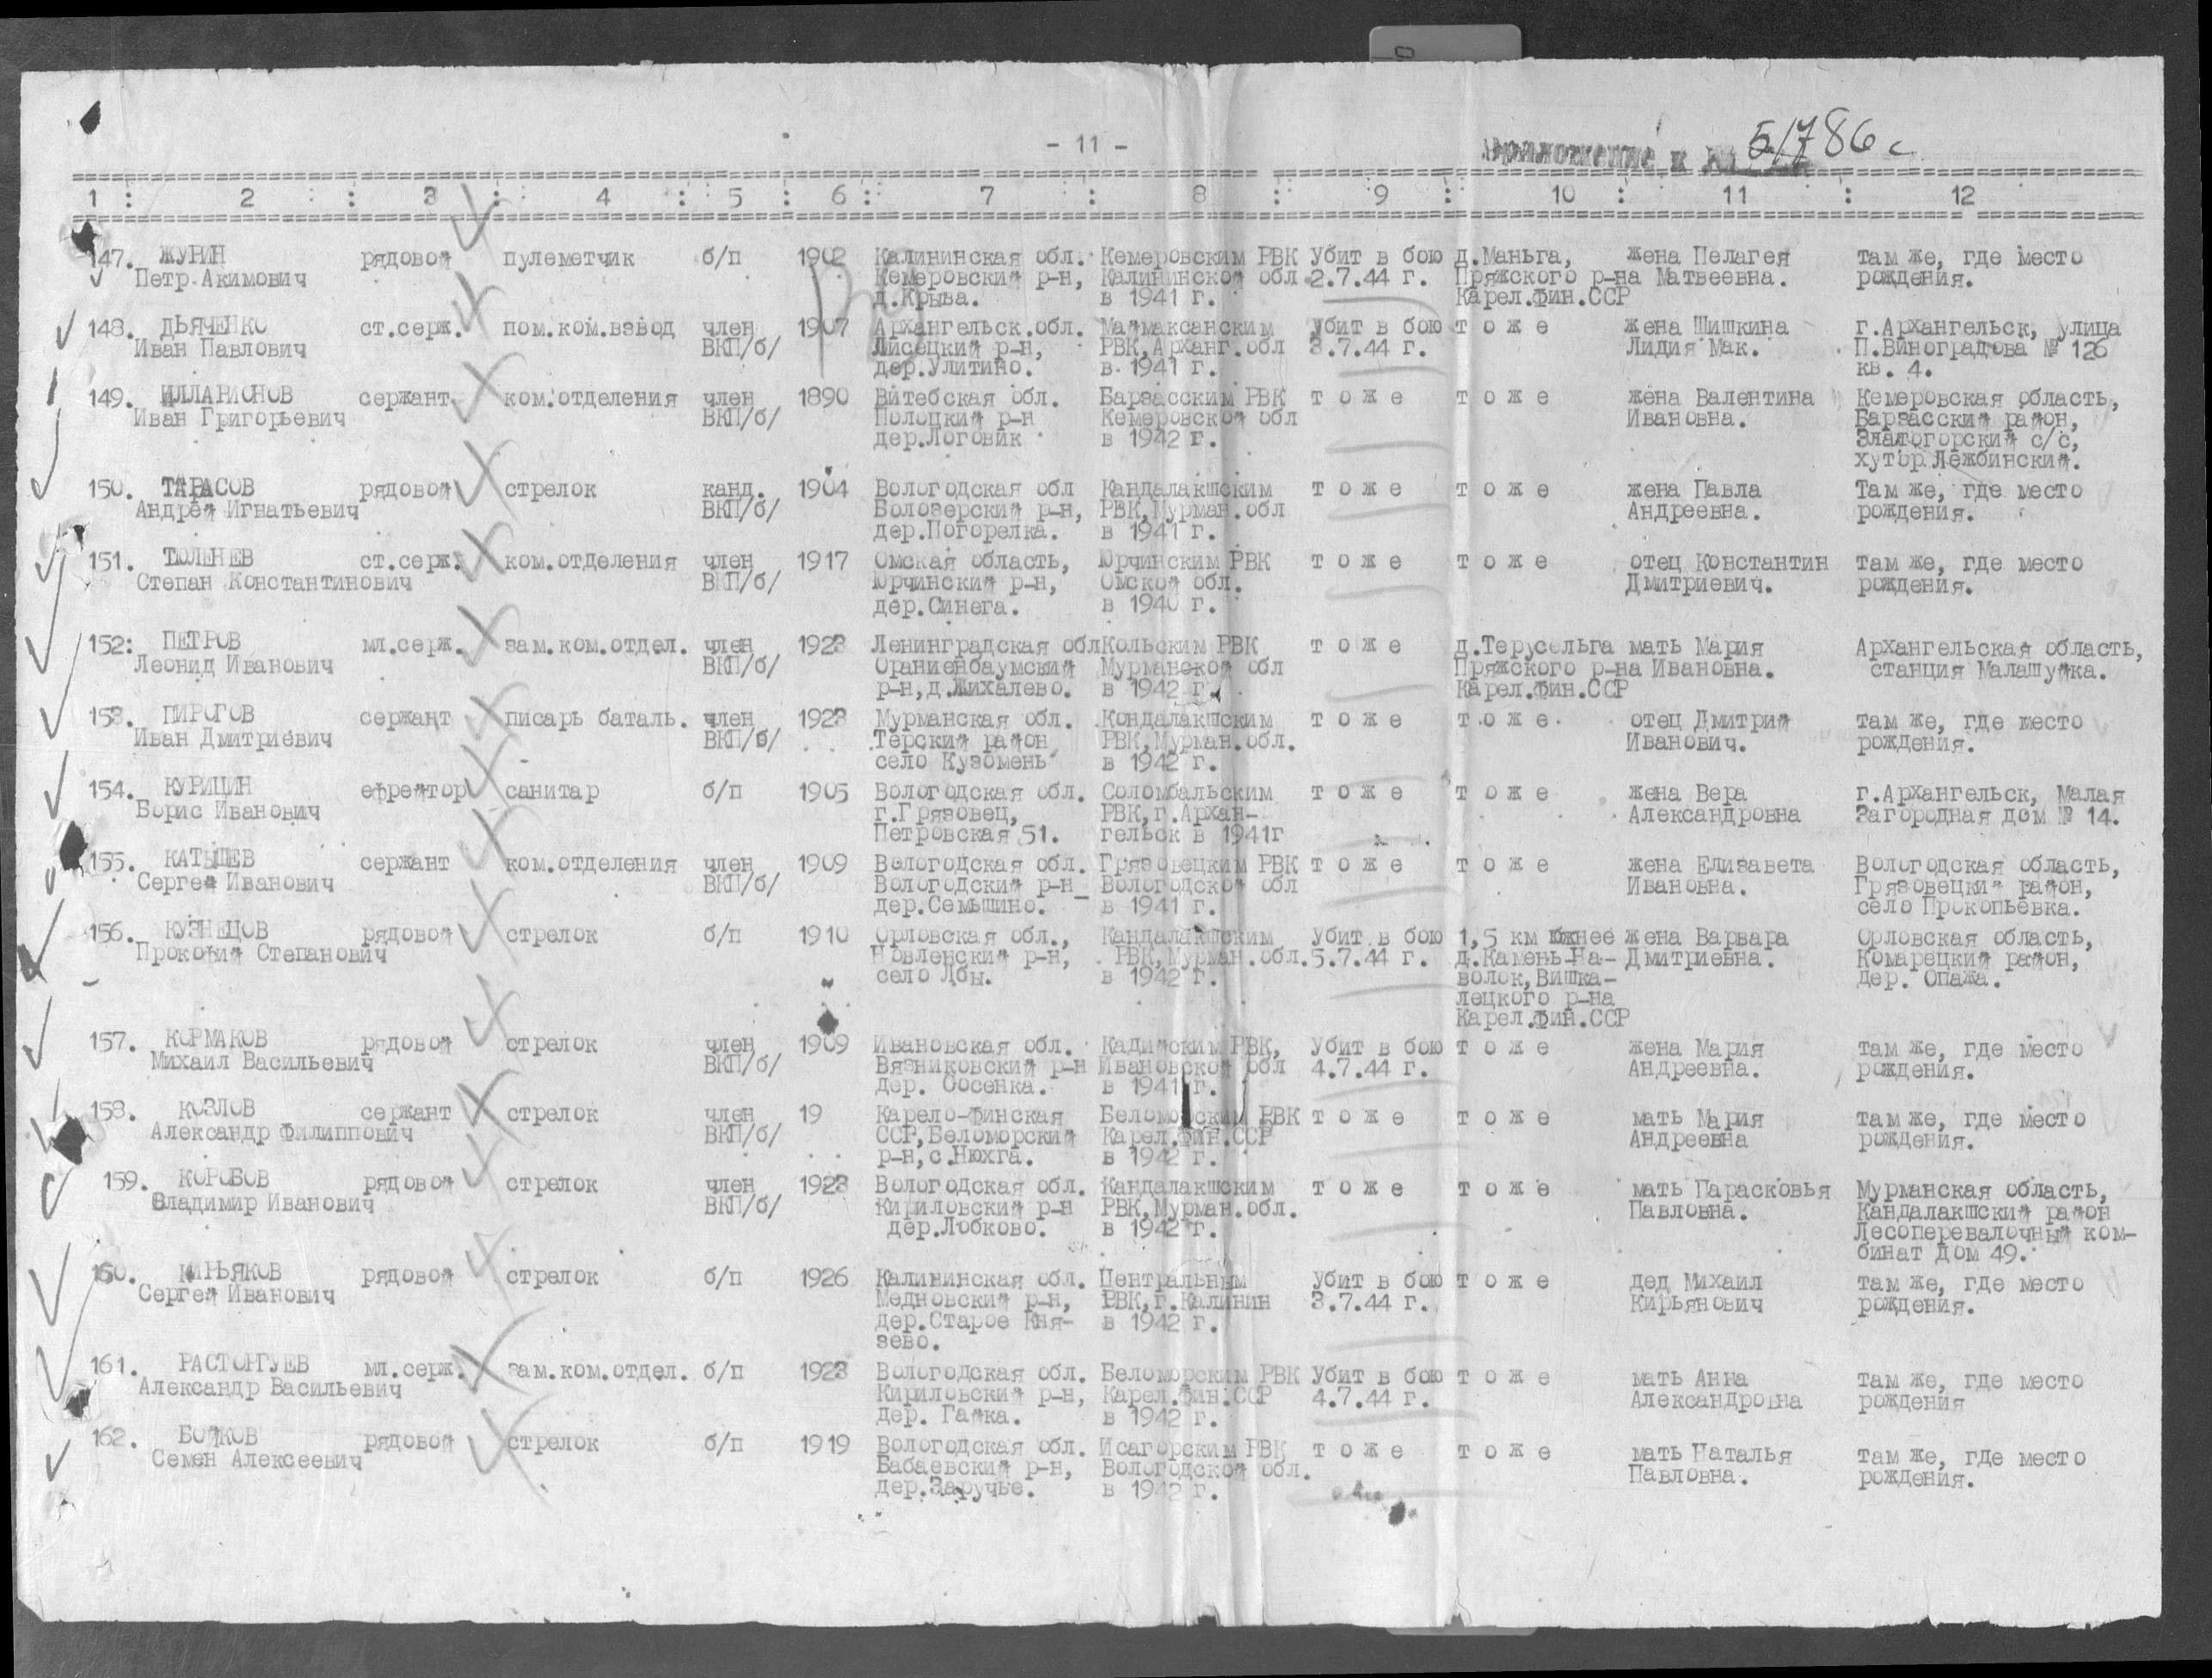 - 11 -
Приложение к № 51786с
1 : 2 : 3 : 4 : 5 : 6 : 7 : 8 : 9 : 10 : 11 : 12
147. ЖУРИН рядовой пулеметчик б/п 1902 Калининская обл. Кемеровским РВК Убит в бою д.Маньга, жена Пелагея там же, где место
Петр Акимович Кемеровский р-н, Калининской обл 2.7.44 г. Пряжского р-на Матвеевна. рождения.
д.Крыва. в 1941 г. Карел.фин.ССР
148. ДЬЯЧЕНКО ст.серж. пом.ком.взвод член 1907 Архангельск.обл. Маймаксанским Убит в бою т о ж е жена Шишкина г.Архангельск, улица
Иван Павлович ВКП/б/ Лисецкий р-н, РВК,Арханг.обл 3.7.44 г. Лидия Мак. П.Виноградова № 126
дер.Улитино. в 1941 г. кв. 4.
149. ИЛЛАРИОНОВ сержант ком.отделения член 1890 Витебская обл. Барзасским РВК т о ж е т о ж е жена Валентина Кемеровская область,
Иван Григорьевич ВКП/б/ Полоцкий р-н Кемеровской обл Ивановна. Барзасский район,
дер.Логовик в 1942 г. Златогорский с/с,
хутор Лежбинский.
150. ТАРАСОВ рядовой стрелок канд. 1904 Вологодская обл Кандалакшским т о ж е т о ж е жена Павла Там же, где место
Андрей Игнатьевич ВКП/б/ Волозерский р-н, РВК,Мурман.обл Андреевна. рождения.
дер.Погорелка. в 1941 г.
151. ТЮЛЕНЕВ ст.серж. ком.отделения член 1917 Омская область, Юрчинским РВК т о ж е т о ж е отец Константин там же, где место
Степан Константинович ВКП/б/ Юрчинский р-н, Омской обл. Дмитриевич. рождения.
дер.Синега. в 1940 г.
152: ПЕТРОВ мл.серж. зам.ком.отдел. член 1923 Ленинградская обл Кольским РВК т о ж е д.Терусельга мать Мария Архангельская область,
Леонид Иванович ВКП/б/ Ораниенбаумский Мурманской обл Пряжского р-на Ивановна. станция Малашуйка.
р-н,д.Жихалево. в 1942 г. Карел.фин.ССР
153. ПИРОГОВ сержант писарь баталь. член 1923 Мурманская обл. Кондалакшским т о ж е т о ж е отец Дмитрий там же, где место
Иван Дмитриевич ВКП/б/ Терский район РВК,Мурман.обл. Иванович. рождения.
село Кузомень в 1942 г.
154. КУРИЦИН ефрейтор санитар б/п 1905 Вологодская обл. Соломбальским т о ж е т о ж е жена Вера г.Архангельск, Малая
Борис Иванович г.Грязовец, РВК,г.Архан- Александровна Загородная дом № 14.
Петровская 51. гельск в 1941г
155. КАТЫШЕВ сержант ком.отделения член 1909 Вологодская обл. Грязовецким РВК т о ж е т о ж е жена Елизавета Вологодская область,
Сергей Иванович ВКП/б/ Вологодский р-н Вологодской обл Ивановна. Грязовецкий район,
дер.Семышино. в 1941 г. село Прокопьевка.
156. КУЗНЕЦОВ рядовой стрелок б/п 1910 Орловская обл., Кандалакшским Убит в бою 1,5 км южнее жена Варвара Орловская область,
Прокофий Степанович Новленский р-н, РВК,Мурман.обл. 5.7.44 г. д.Камень-На- Дмитриевна. Комарецкий район,
село Лбы. в 1942 г. волок,Вишка- дер. Опажа.
лецкого р-на
Карел.фин.ССР
157. КОРМАКОВ рядовой стрелок член 1909 Ивановская обл. Кадийским РВК, Убит в бою т о ж е жена Мария там же, где место
Михаил Васильевич ВКП/б/ Вязниковский р-н Ивановской обл 4.7.44 г. Андреевна. рождения.
дер. Сосенка. в 1941 г.
158. КОЗЛОВ сержант стрелок член 19 Карело-финская Беломорским РВК т о ж е т о ж е мать Мария там же, где место
Александр Филиппович ВКП/б/ ССР,Беломорский Карел.фин.ССР Андреевна рождения.
р-н,с.Нюхга. в 1942 г.
159. КОРОБОВ рядовой стрелок член 1923 Вологодская обл. Кандалакшским т о ж е т о ж е мать Парасковья Мурманская область,
Владимир Иванович ВКП/б/ Кириловский р-н РВК,Мурман.обл. Павловна. Кандалакшский район
дер.Лобково. в 1942 г. Лесоперевалочный ком-
бинат дом 49.
160. КИРЬЯКОВ рядовой стрелок б/п 1926 Калининская обл. Центральным Убит в бою т о ж е дед Михаил там же, где место
Сергей Иванович Медновский р-н, РВК,г.Калинин 3.7.44 г. Кирьянович рождения.
дер.Старое Кня- в 1942 г.
зево.
161. РАСТОРГУЕВ мл.серж. зам.ком.отдел. б/п 1923 Вологодская обл. Беломорским РВК Убит в бою т о ж е мать Анна там же, где место
Александр Васильевич Кириловский р-н, Карел.фин.ССР 4.7.44 г. Александровна рождения
дер. Гайка. в 1942 г.
162. БОЙКОВ рядовой стрелок б/п 1919 Вологодская обл. Исагорским РВК т о ж е т о ж е мать Наталья там же, где место
Семен Алексеевич Бабаевский р-н, Вологодской обл. Павловна. рождения.
дер.Заручье. в 1942 г.